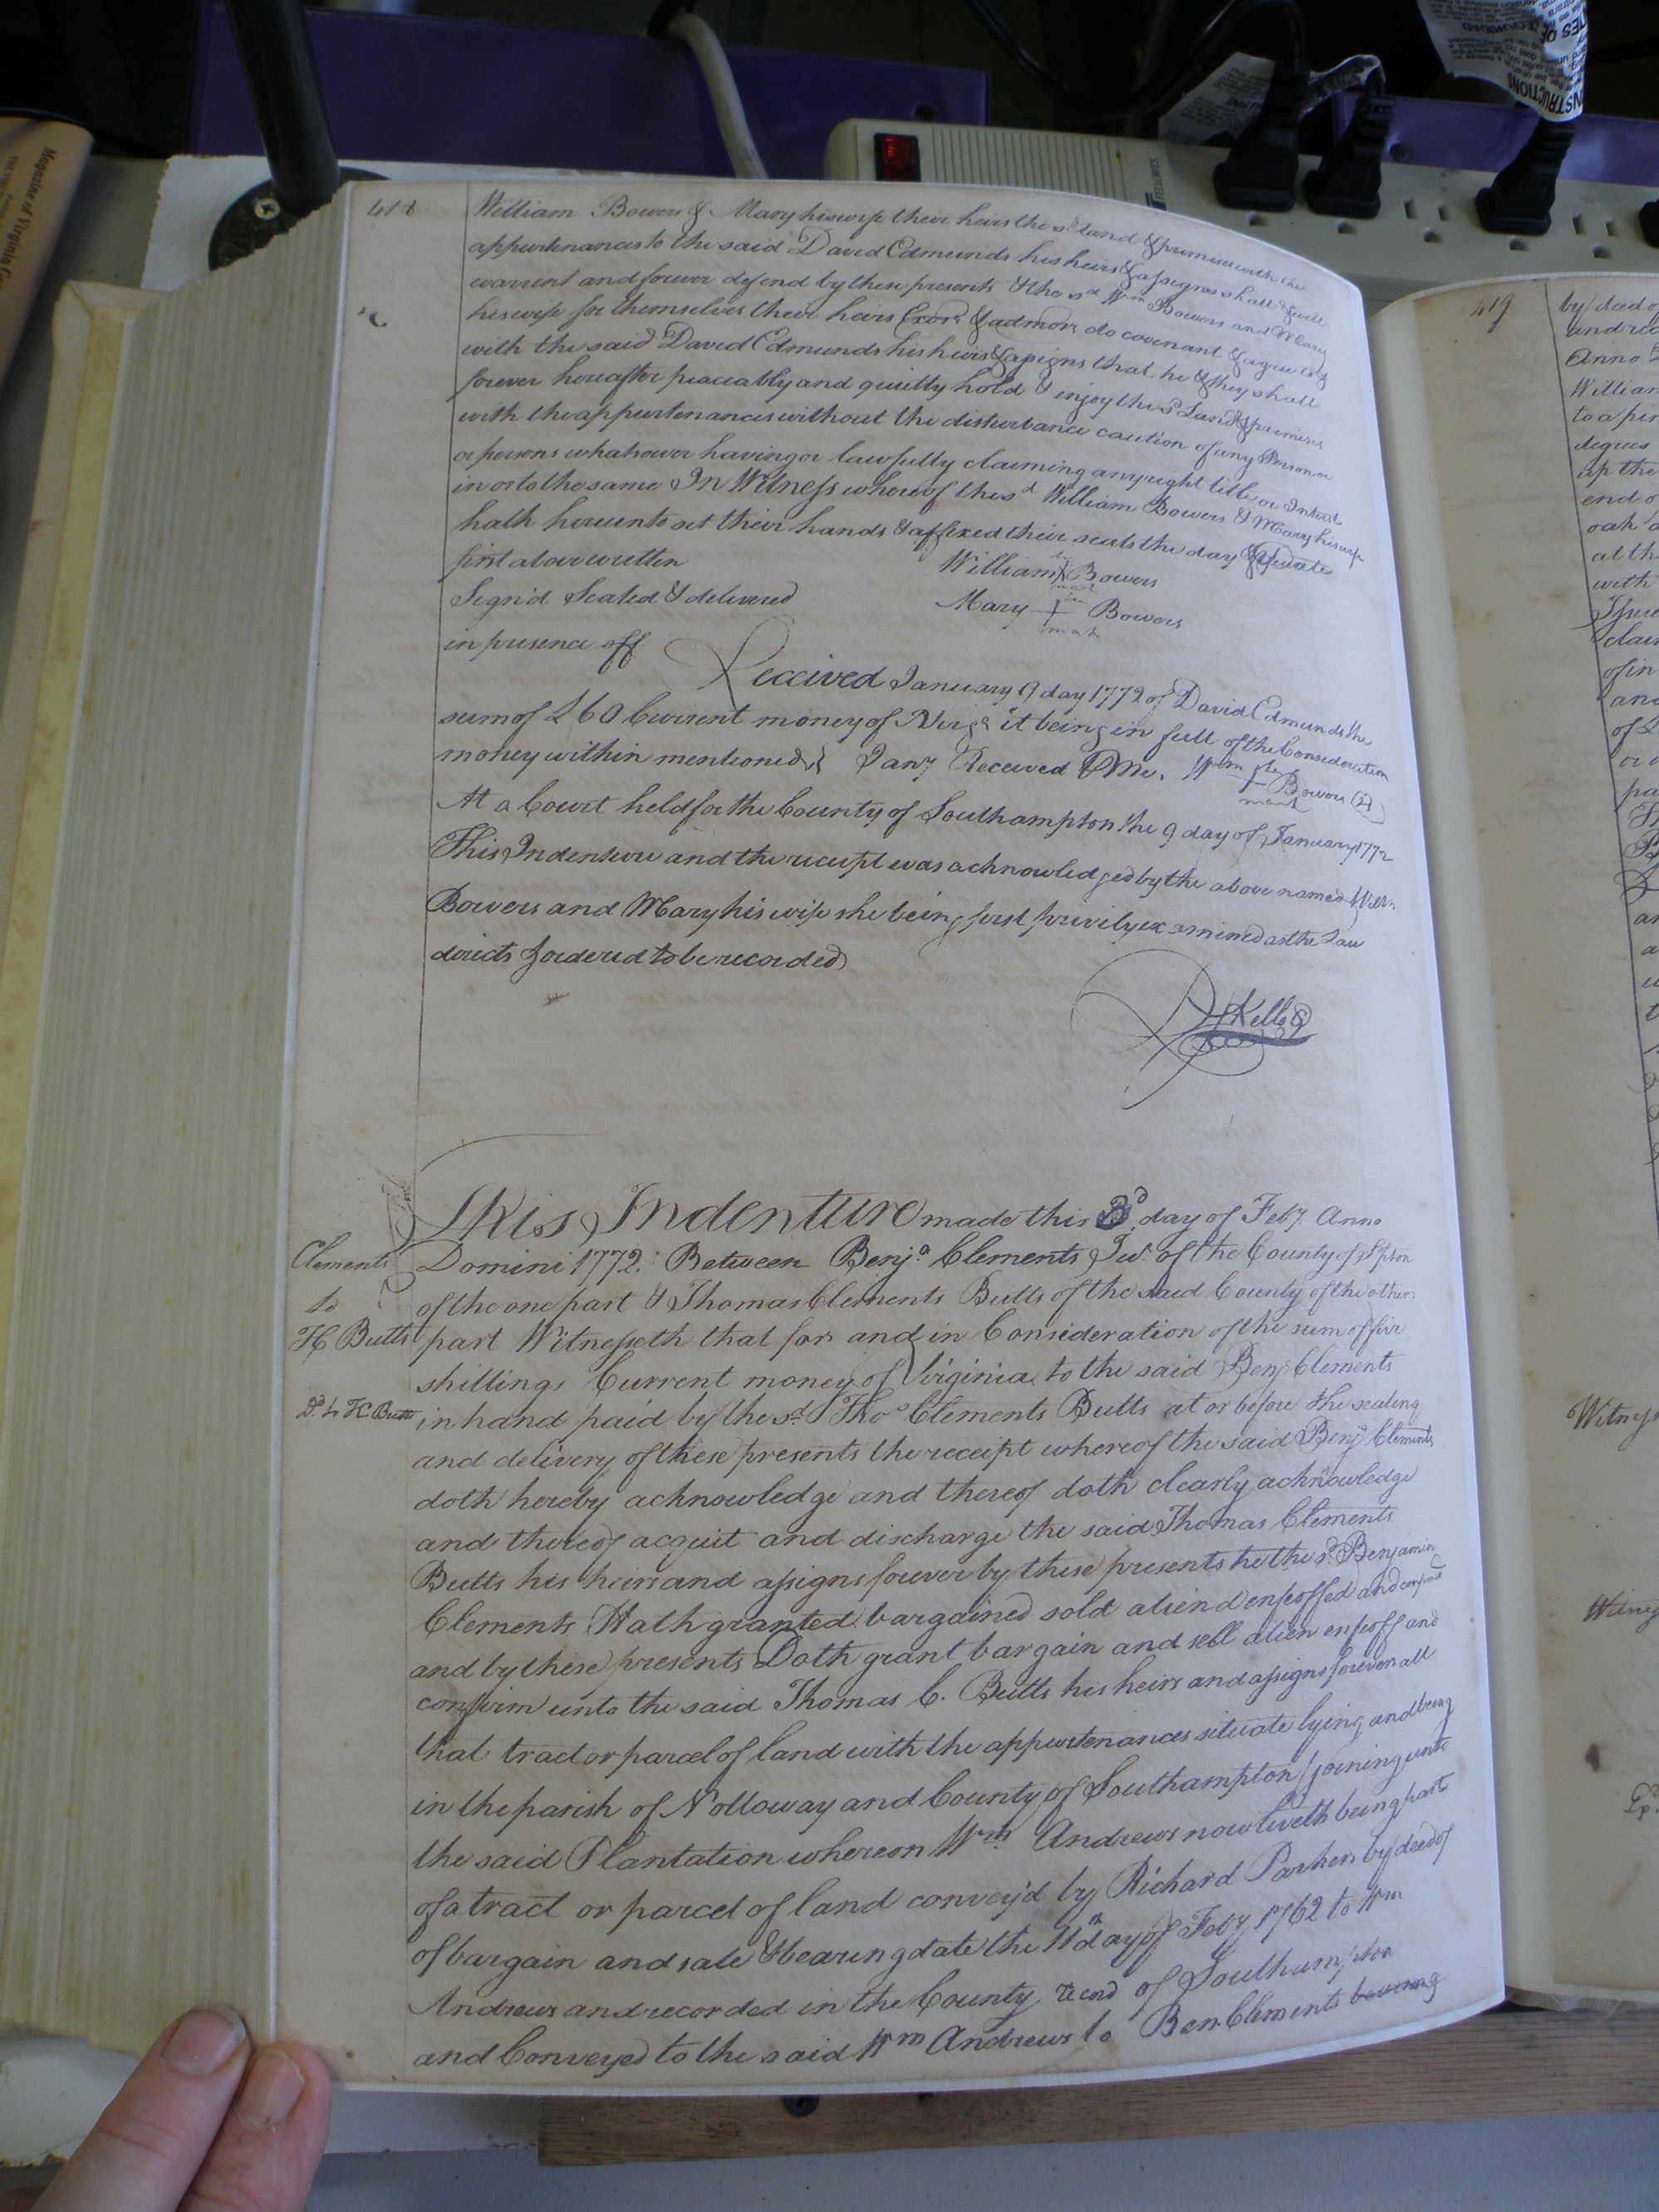 418
William Bowers & Mary his wife their heirs the sd land & premises with the
appurtenances to the said David Edmunds his heirs & assigns shall & will
warrent and forever defend by these presents & the sd Wm Bowers and Mary
his wife for themselves their heirs Exors & admors do covenant & agree to &
with the said David Edmunds his heirs & assigns that he & they shall
forever hereafter peaceably and quietly hold & enjoy the sd Land & premises
with the appurtenances without the disturbance caution of any Person or
or persons whatsower having or lawfully claiming any right title or Intrest
in or to the same In Witness whereof the sd William Bowers & Mary his wife
hath hereunto set their hands & affixed their seals the day &
first above written
William his X mark Bowers
Sign'd Sealed & delivered
Mary + mark Bowers
in presence off
Received January 9 day 1772 of David Edmunds the
sum of £60 Current money of Virga it being in full of the Consideration
money within mentioned Jany Received Me. Wm his + mark Bowers
At a Court held for the County of Southampton the 9 day of January 1772
This Indenture and the receipt was acknowledged by the above named Willm
Bowers and Mary his wife she being first privily examined as the Law
directs & ordered to be recorded
Kello
This Indenture made this 3d day of Feby. Anno
Clements
to
H Butts
Domini 1772. Between Benja Clements Jur. of the County of Spton
of the one part & Thomas Clements Butts of the said County of the other
part Witnesseth that for and in Consideration of the sum of five
shillings Current money of Virginia to the said Benj Clements
Dd to HC Butts
in hand paid by the sd Thos Clements Butts at or before the sealing
and delivery of these presents the receipt whereof the said Benj Clements
doth hereby acknowledge and thereof doth clearly acknowledge
and thereof acquit and discharge the said Thomas Clements
Butts his heirs and assigns forever by these presents he the sd Benjamin
Clements Hath granted bargained sold aliend enfeoffed and
and by these presents Doth grant bargain and sell alien enfeoff and
confirm unto the said Thomas C. Butts his heirs and assigns forever all
that tract or parcel of land with the appurtenances situate lying and being
in the parish of Nolloway and County of Southampton joining unto
the said Plantation whereon Wm Andrews now liveth being part
of a tract or parcel of land convey'd by Richard Parker by deed of
of bargain and sale & bearing date the 11th day of Feby 1762 to Wm
Andrews and recorded in the County record of Southampton
and Conveyed to the said Wm Andrews to Ben Clements bearing
419
by deed of
Anno
William
degrees
up the
end of
oak
at the
with
and
Witness
Witness
Magazine of Virginia
INSTRUCTIONS